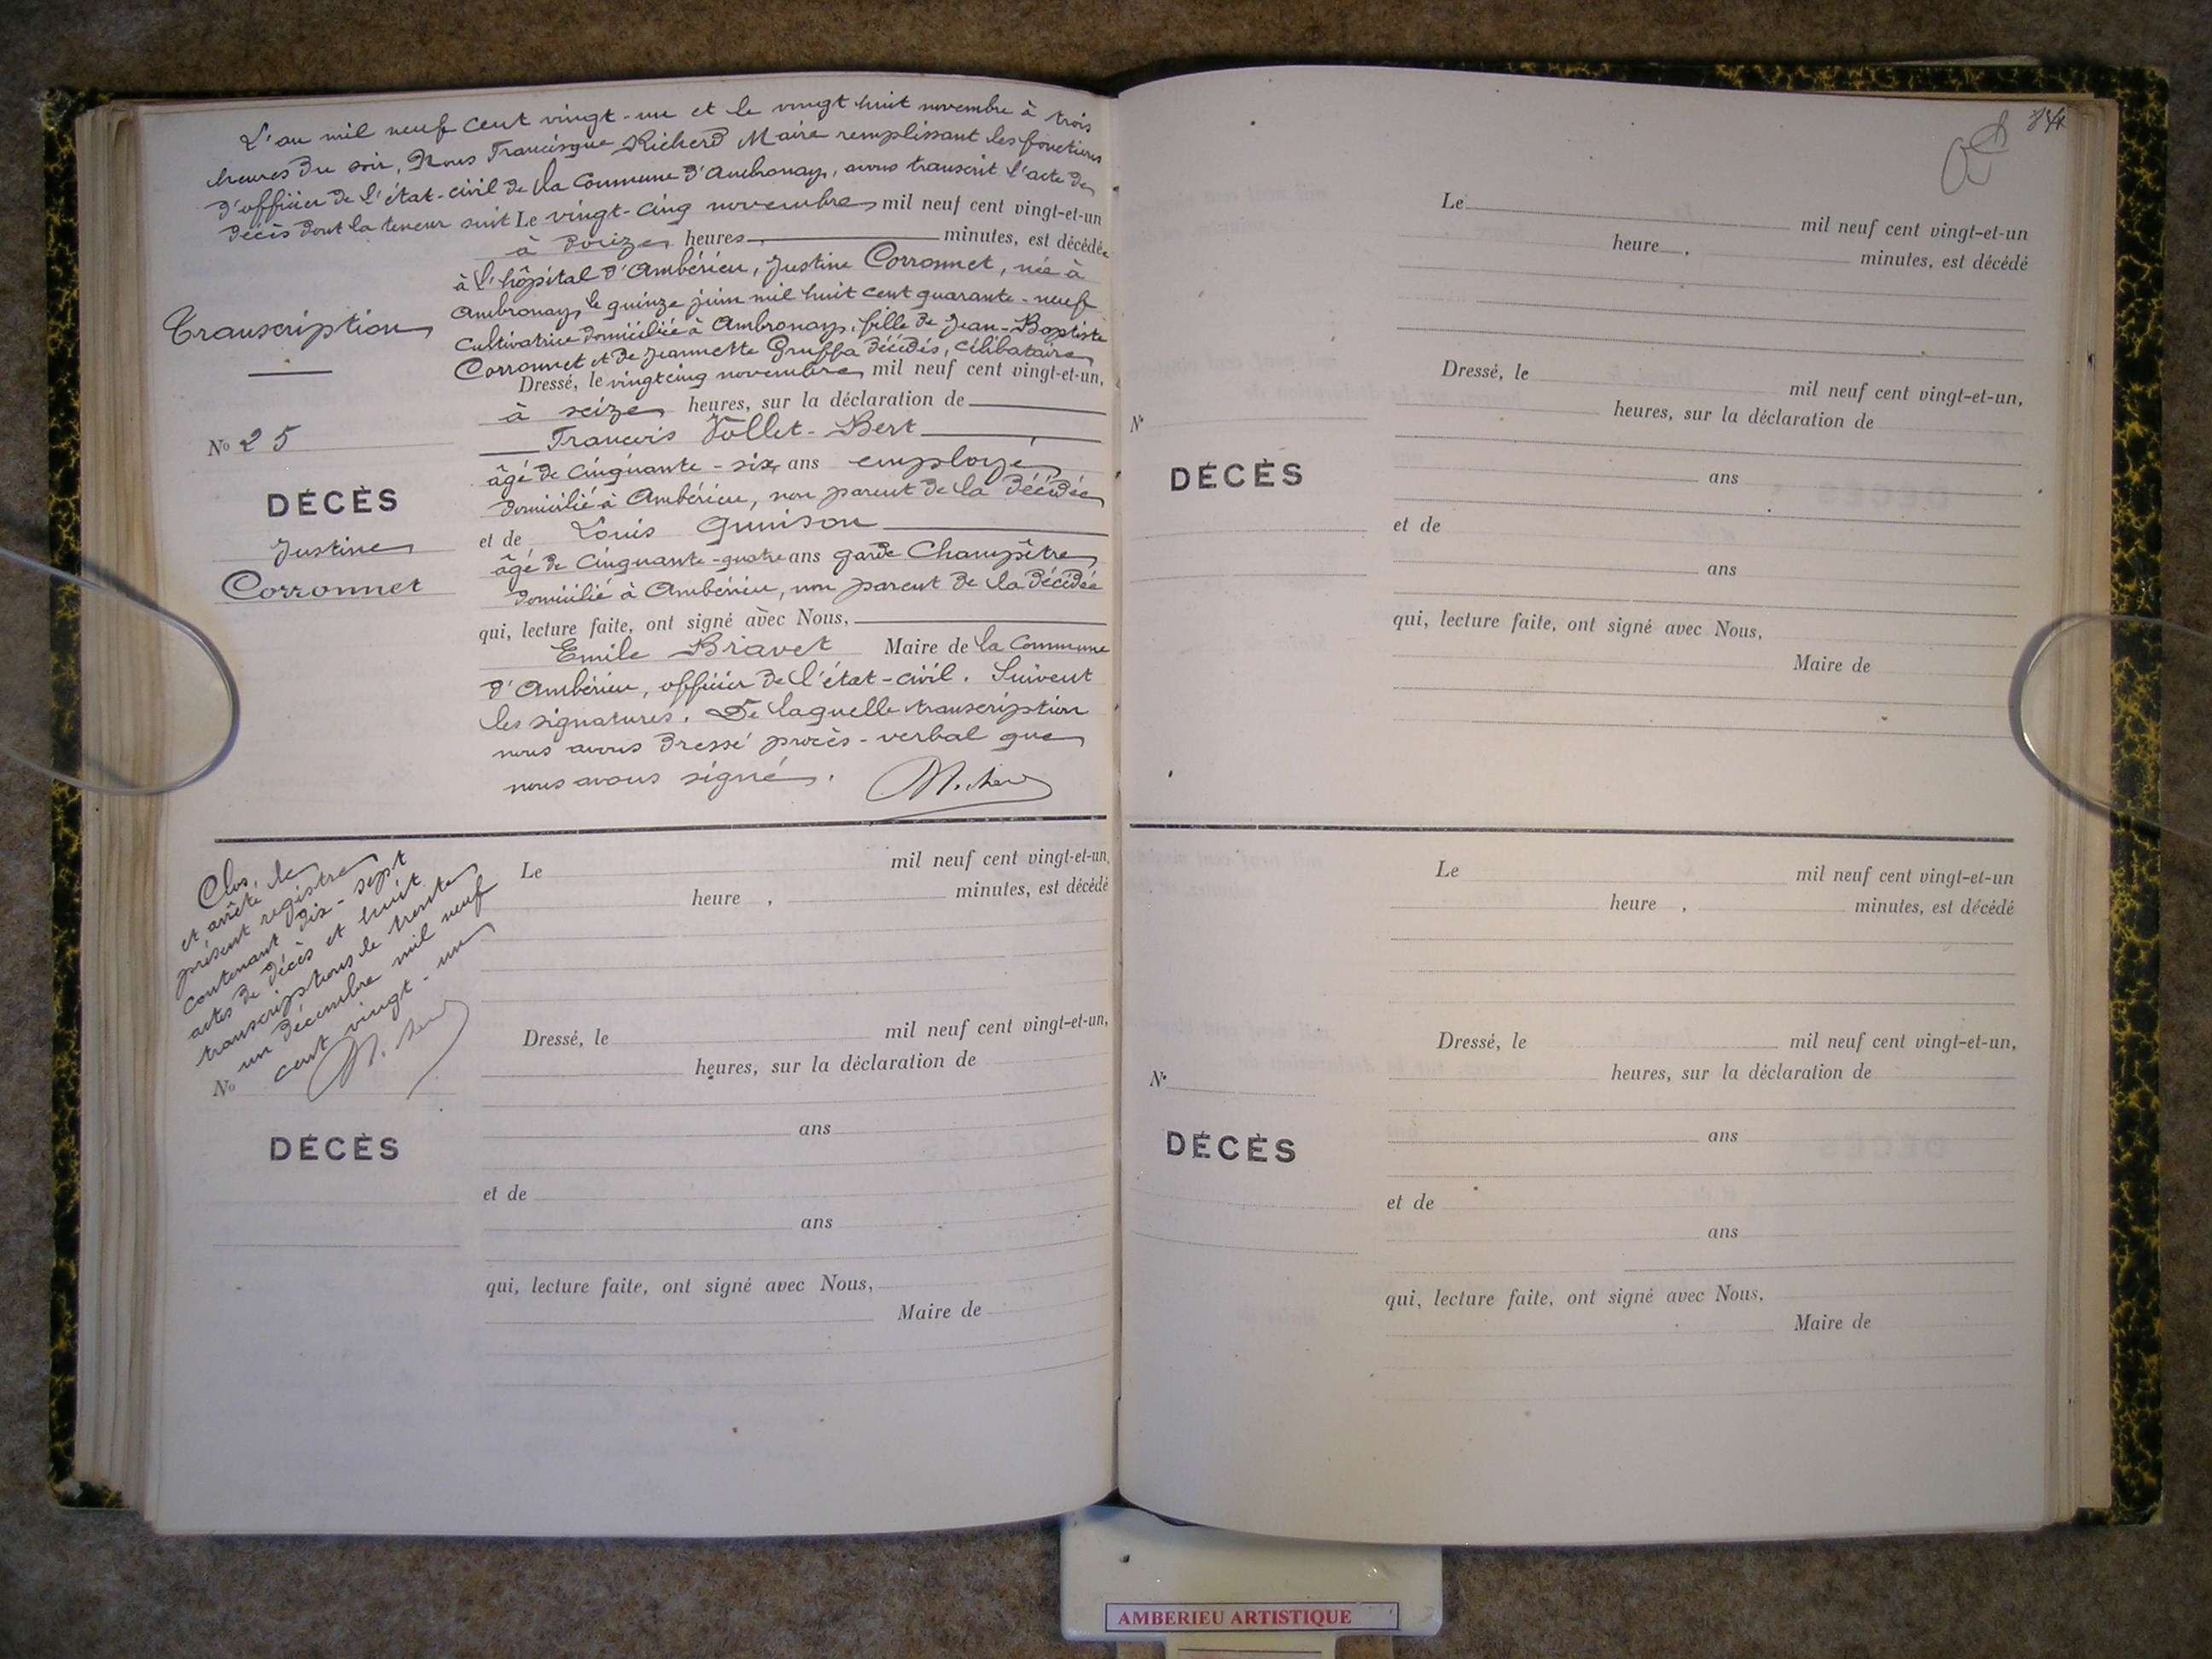 L'an mil neuf cent vingt-un et le vingt huit novembre à trois
heures du soir, Nous Francisque Richerd Maire remplissant les fonctions
d'officier de l'état-civil de la Commune d'Ambronay, avons transcrit l'acte de
décès dont la teneur suit Le vingt-cinq novembre mil neuf cent vingt-et-un
à heures minutes, est décédée
à l'hôpital d'Ambérieu, Justine Corronnet, née à
Ambronay le quinze juin mil huit cent quarante-neuf
Cultivatrice domiciliée à Ambronay, fille de Jean-Baptiste
Corronnet et de Jeannette Gruffa décédés, célibataire
Transcription
Dressé, le vingt cinq novembre mil neuf cent vingt-et-un,
à seize heures, sur la déclaration de
François Vollet-Bert
âgé de cinquante-six ans employé
domicilié à Ambérieu, non parent de la décédée
et de Louis Gunison
âgé de Cinquante-quatre ans garde Champêtre
domicilié à Ambérieu, non parent de la décédée
qui, lecture faite, ont signé avec Nous,
Emile Bravet Maire de la Commune
d'Ambérieu, officier de l'état-civil. Suivent
les signatures. De laquelle transcription
nous avons dressé procès-verbal que
nous avons signé.
No 25
DÉCÈS
Justine
Corronnet
Clos, le
et arrêté
présent registre
contenant dix-sept
actes de décès et huit
transcriptions le trente
un décembre mil neuf
cent vingt-un
No
DÉCÈS
Le mil neuf cent vingt-et-un,
heure , minutes, est décédé
Dressé, le mil neuf cent vingt-et-un,
heures, sur la déclaration de
ans
et de
ans
qui, lecture faite, ont signé avec Nous,
Maire de
Le mil neuf cent vingt-et-un
heure , minutes, est décédé
Dressé, le mil neuf cent vingt-et-un,
heures, sur la déclaration de
N°
DÉCÈS
ans
et de
ans
qui, lecture faite, ont signé avec Nous,
Maire de
Le mil neuf cent vingt-et-un
heure , minutes, est décédé
Dressé, le mil neuf cent vingt-et-un,
heures, sur la déclaration de
N°
DÉCÈS
ans
et de
ans
qui, lecture faite, ont signé avec Nous,
Maire de
AMBERIEU ARTISTIQUE